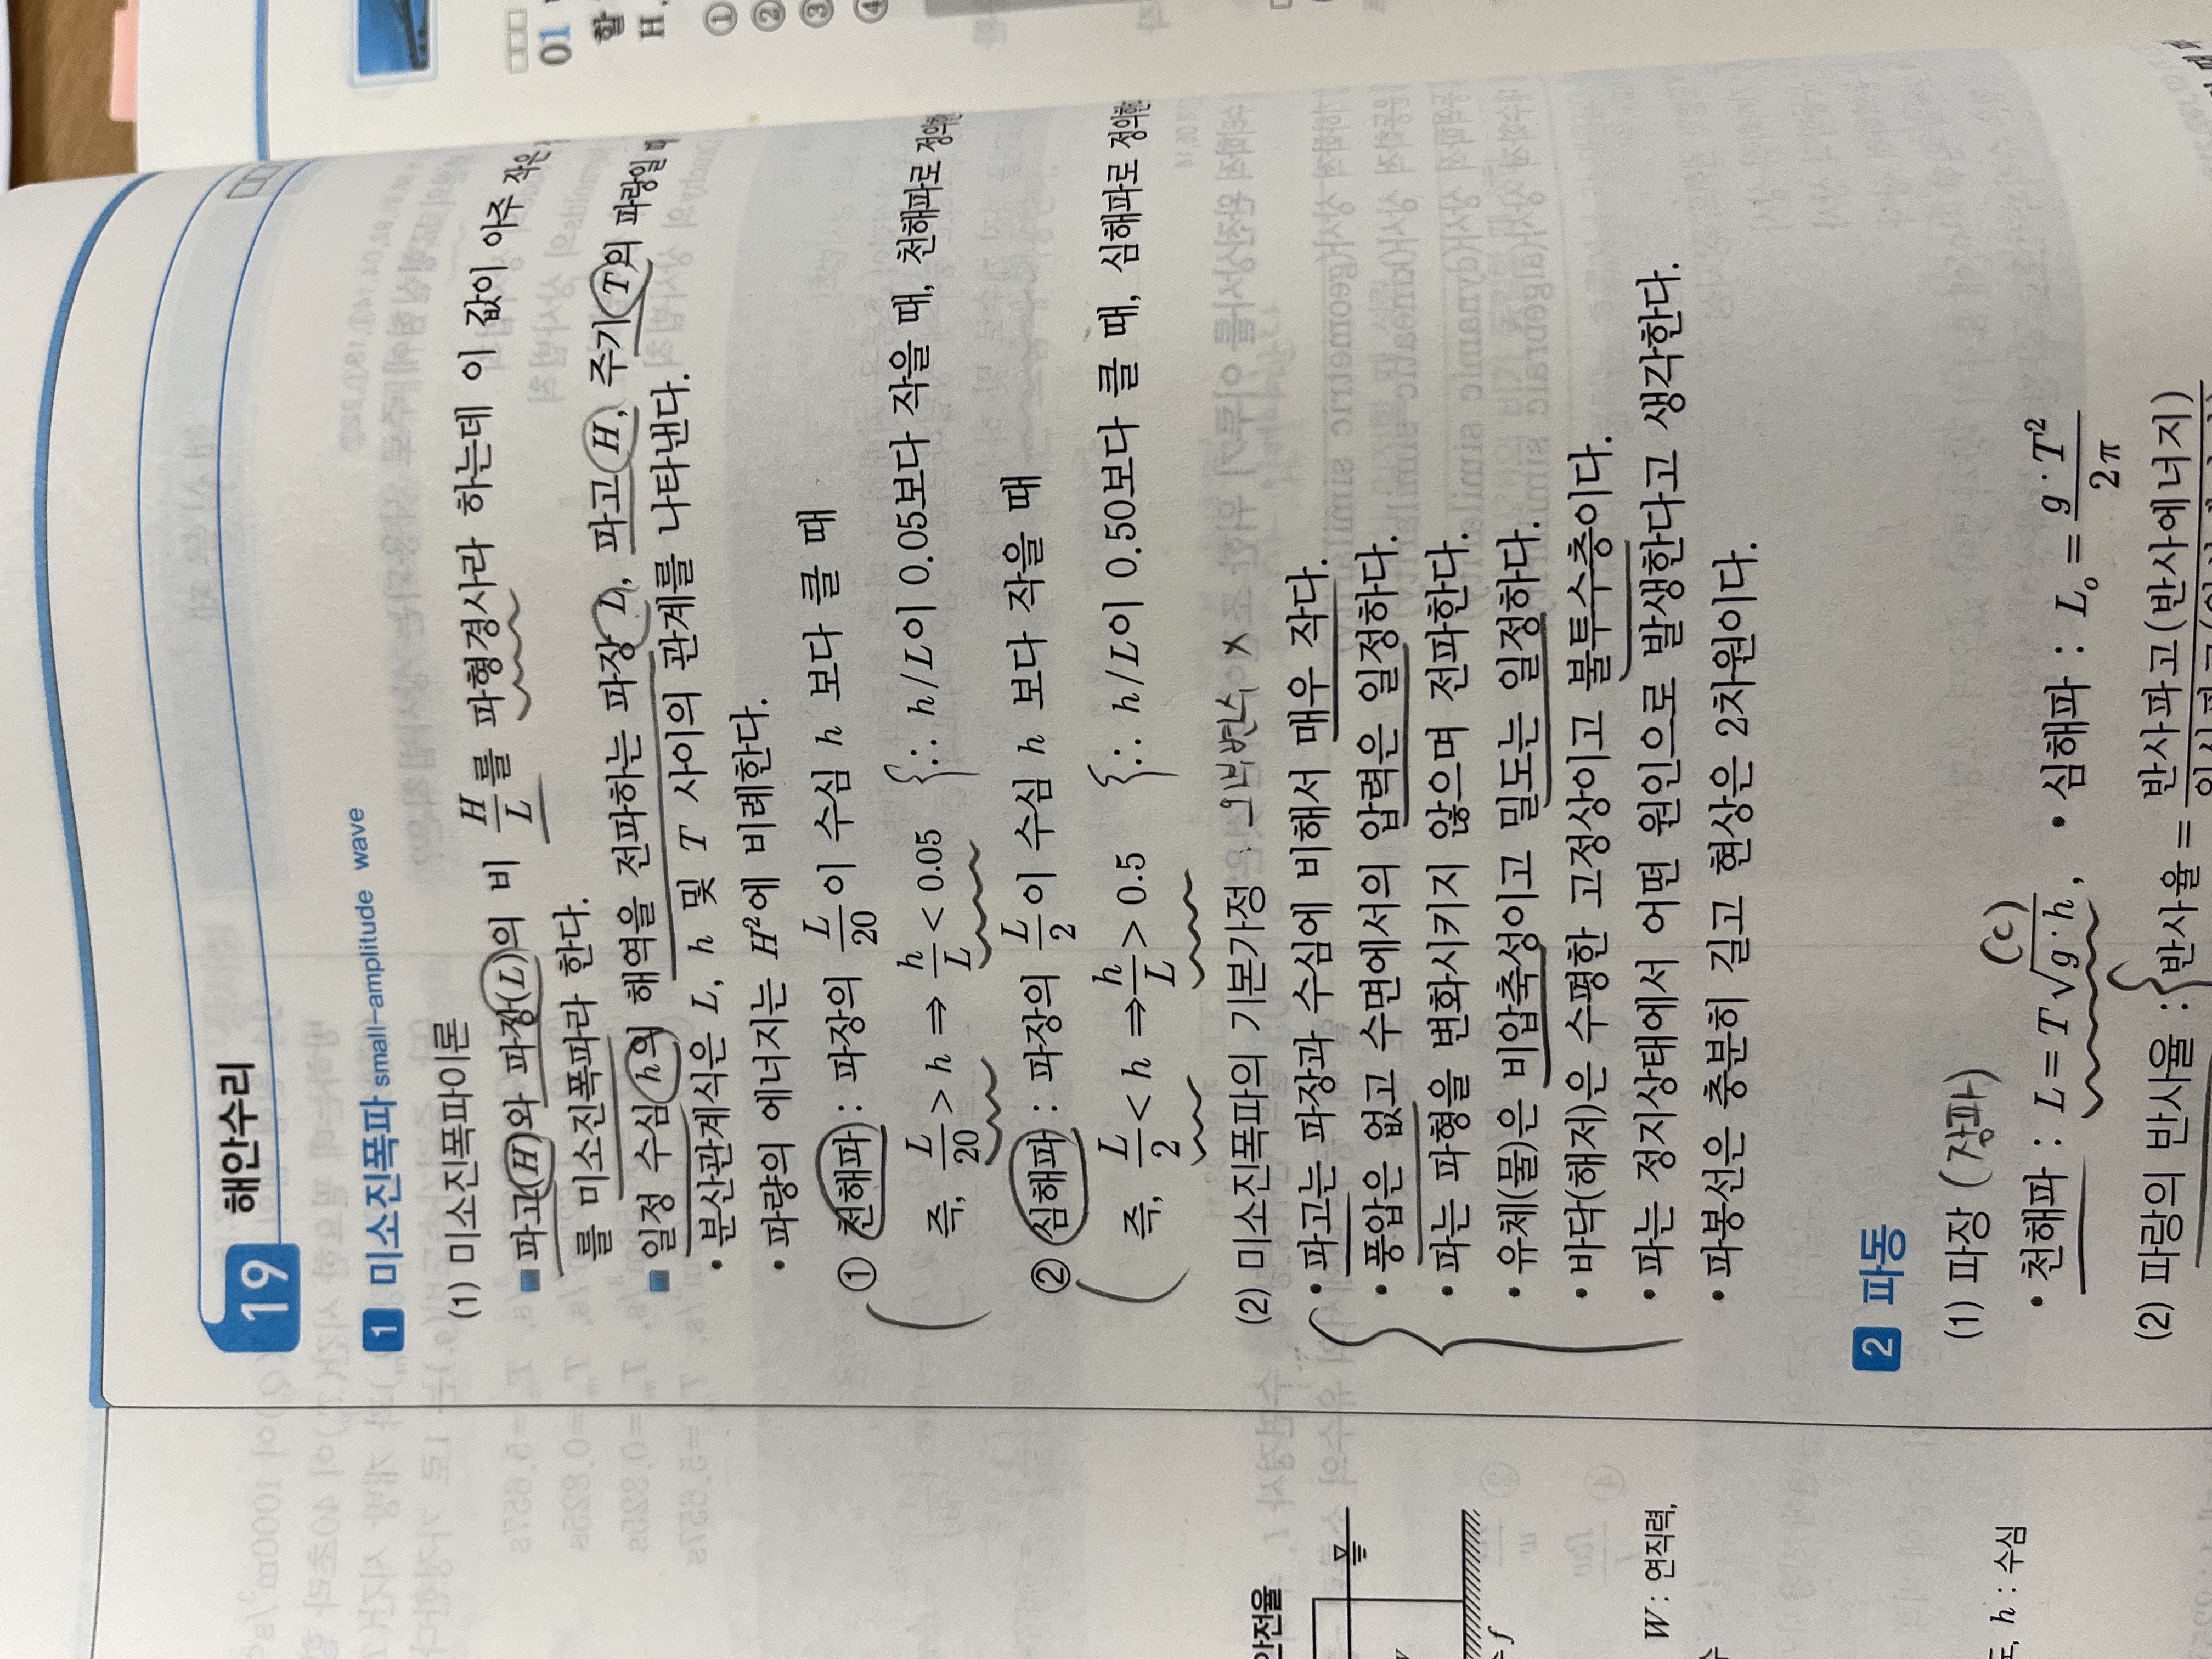 19 해안수리
1 미소진폭파 small-amplitude wave
(1) 미소진폭파이론
파고(H)와 파장(L)의 비 H/L를 파형경사라 하는데 이 값이 아주 작은
를 미소진폭파라 한다.
일정 수심 h의 해역을 전파하는 파장 L, 파고 H, 주기 T의 파랑일
• 분산관계식은 L, h 및 T 사이의 관계를 나타낸다.
• 파랑의 에너지는 H²에 비례한다.
① 천해파 : 파장의 L/20이 수심 h 보다 클 때
즉, L/20 > h ⇒ h/L < 0.05 ∴ h/L이 0.05보다 작을 때, 천해파로 정의한
② 심해파 : 파장의 L/2이 수심 h 보다 작을 때
즉, L/2 < h ⇒ h/L > 0.5 ∴ h/L이 0.50보다 클 때, 심해파로 정의한
(2) 미소진폭파의 기본가정
• 파고는 파장과 수심에 비해서 매우 작다.
• 풍압은 없고 수면에서의 압력은 일정하다.
• 파는 파형을 변화시키지 않으며 전파한다.
• 유체(물)은 비압축성이고 밀도는 일정하다.
• 바닥(해저)은 수평한 고정상이고 불투수층이다.
• 파는 정지상태에서 어떤 원인으로 발생한다고 생각한다.
• 파봉선은 충분히 길고 현상은 2차원이다.
2 파동
(1) 파장 (장파)
(C)
• 천해파 : L = T√g·h, • 심해파 : L₀ = g·T²/2π
(2) 파랑의 반사율 : 반사율 = 반사파고(반사에너지)
안전율
f
W : 연직력,
h : 수심
01
할
H
①
②
③
④